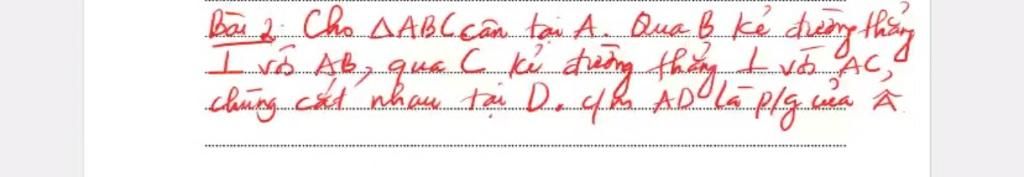 Bài 2: Cho △ABC cân tại A. Qua B kẻ đường thẳng
⊥ với AB, qua C kẻ đường thẳng ⊥ với AC,
chúng cắt nhau tại D. c/m AD là p/g của Â